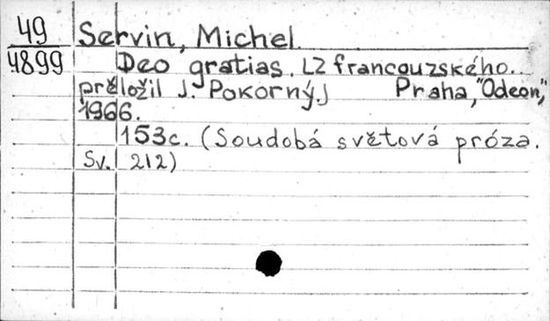 49 Servin, Michel.
4899 Deo gratias. [Z francouzského
přeložil J. Pokorný] Praha, "Odeon",
1966.
153c. (Soudobá světová próza.
Sv. 212)